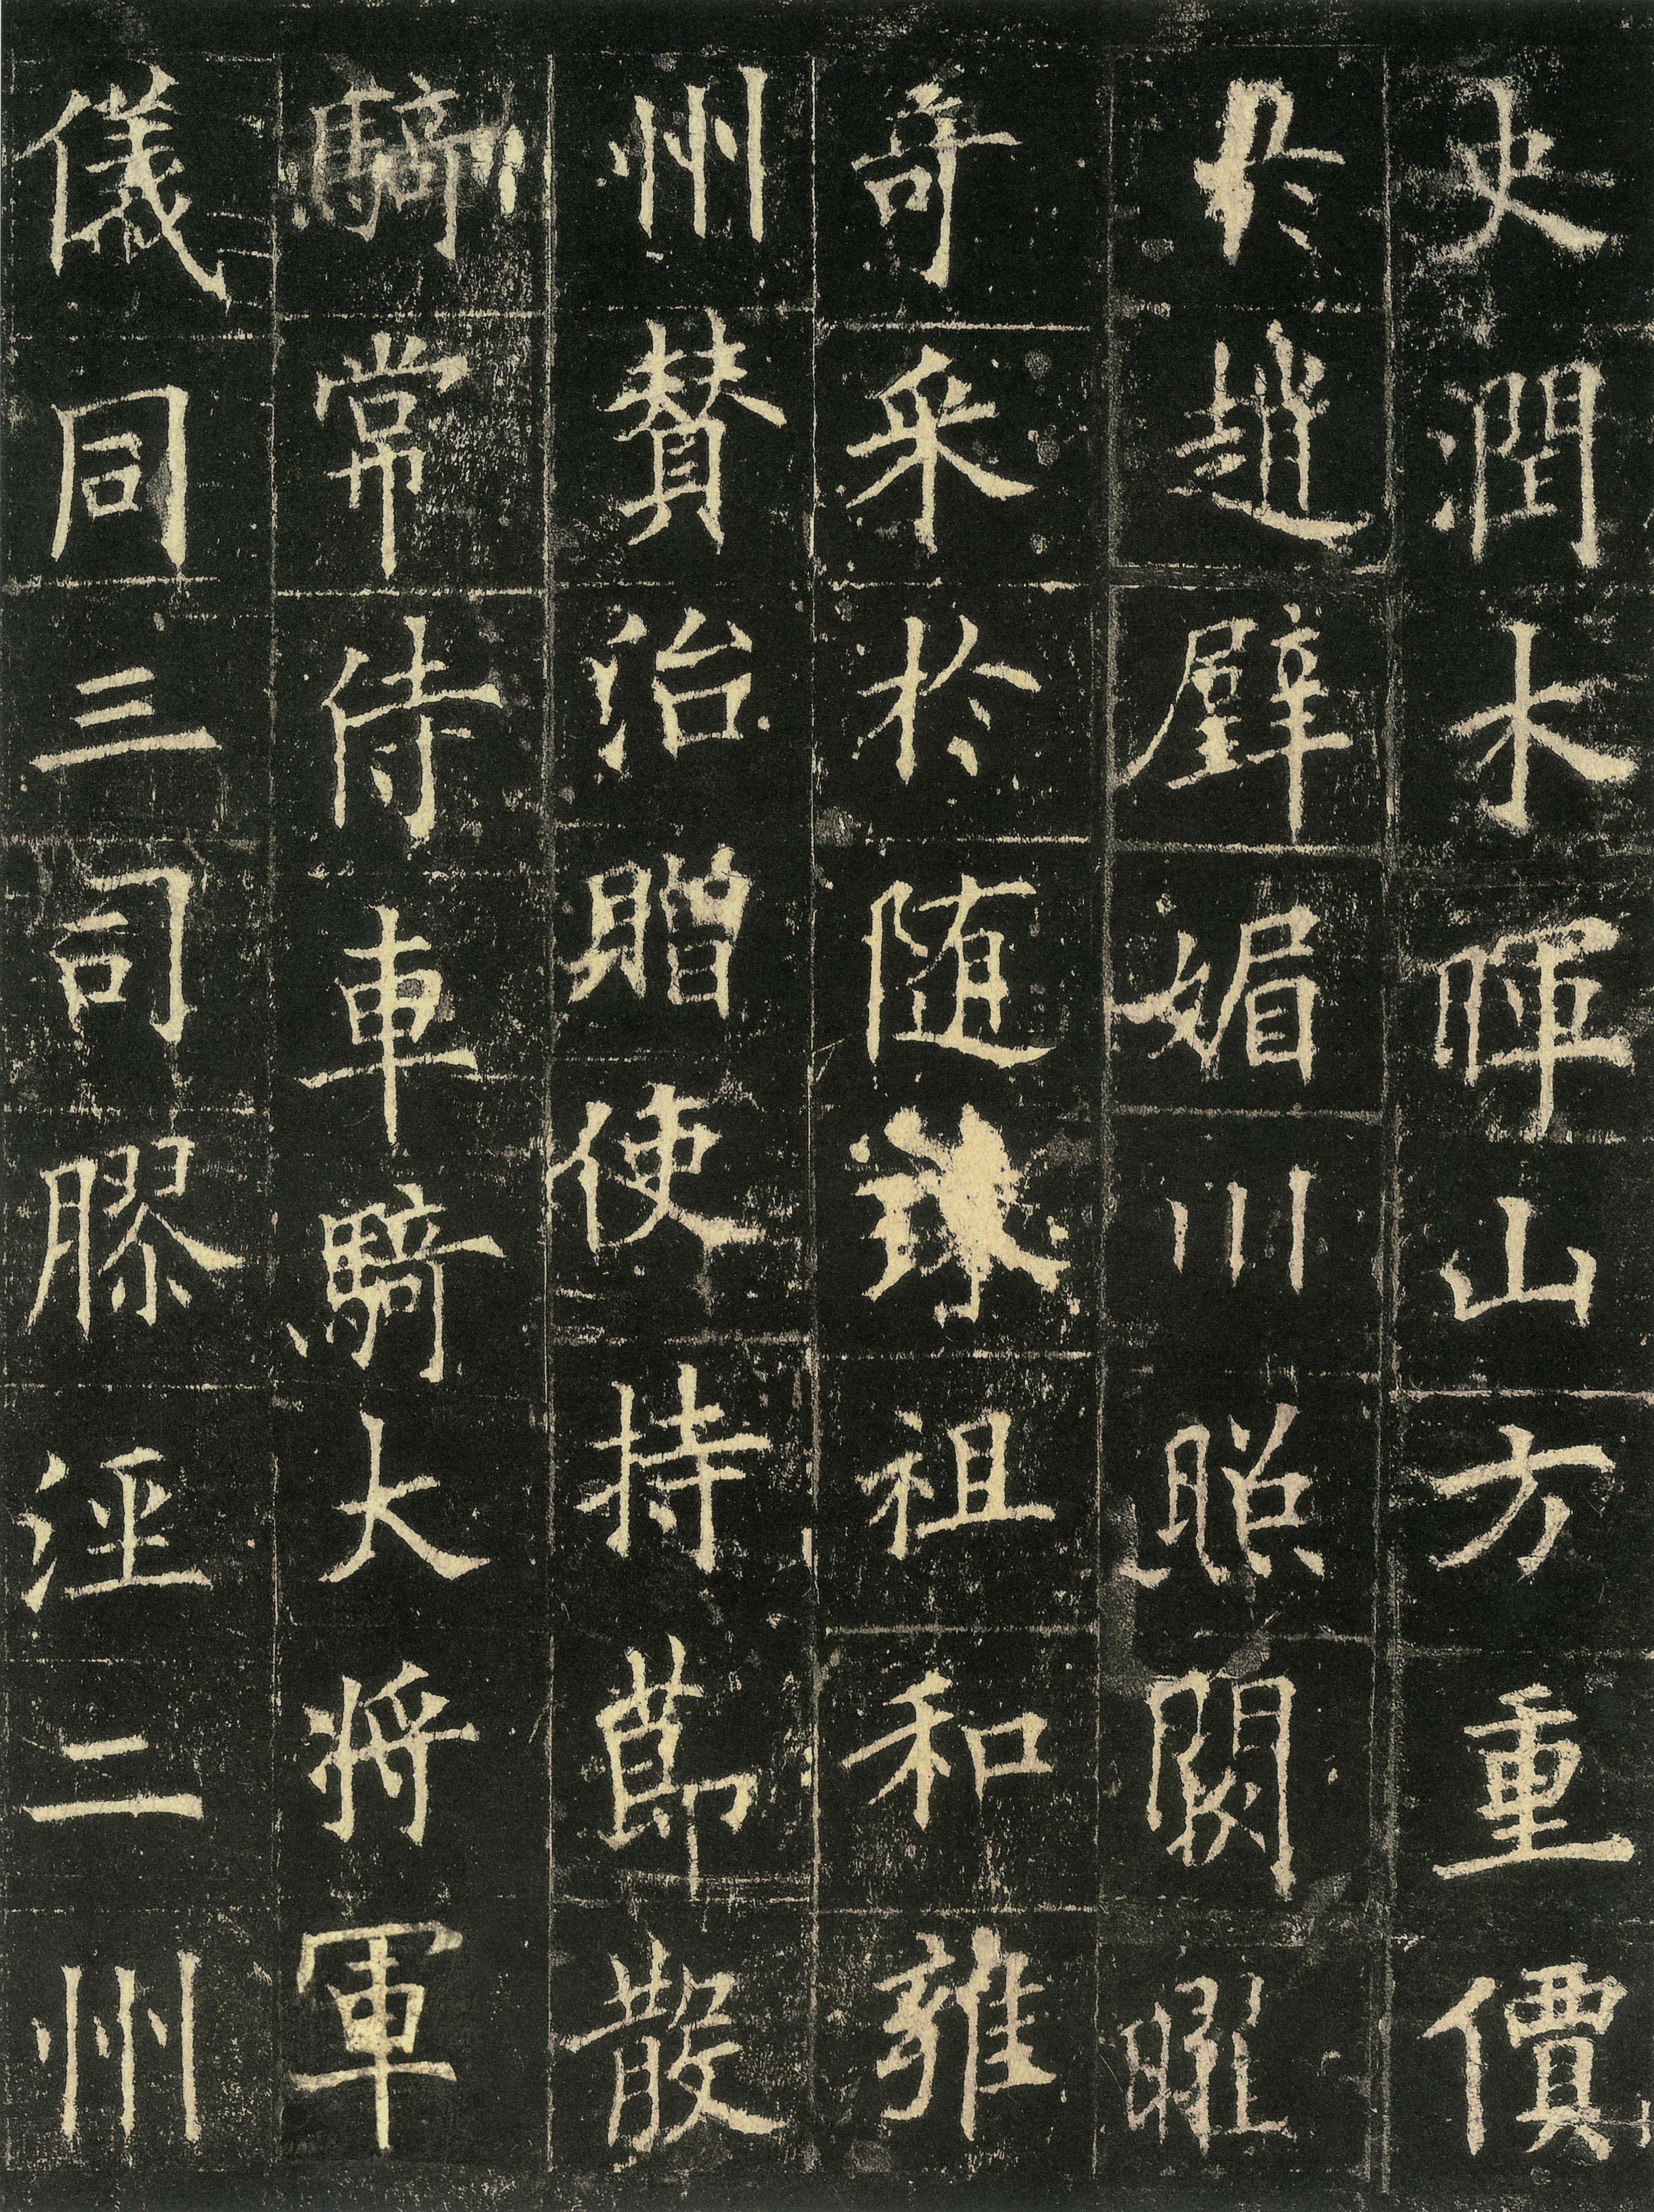 史潤木暉山方重價
於趙璧媚川照闕曜
奇采於随珠祖和雍
州贊治贈使持節散
騎常侍車騎大將軍
儀同三司膠涇二州